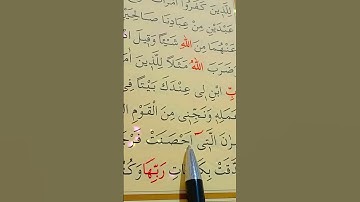 لِلَّذ۪ينَ كَفَرُوا امْرَاَتَ
عَبْدَيْنِ مِنْ عِبَادِنَا صَالِحَيْنِ
عَنْهُمَا مِنَ اللّٰهِ شَيْـًٔا وَق۪يلَ
ضَرَبَ اللّٰهُ مَثَلًا لِلَّذ۪ينَ
ابْنِ ل۪ي عِنْدَكَ بَيْتًا فِي
مَلِه۪ وَنَجِّن۪ي مِنَ الْقَوْمِ
رٰنَ الَّت۪ٓي اَحْصَنَتْ فَرْجَ
دَّقَتْ رَبِّهَا وَكُتُ